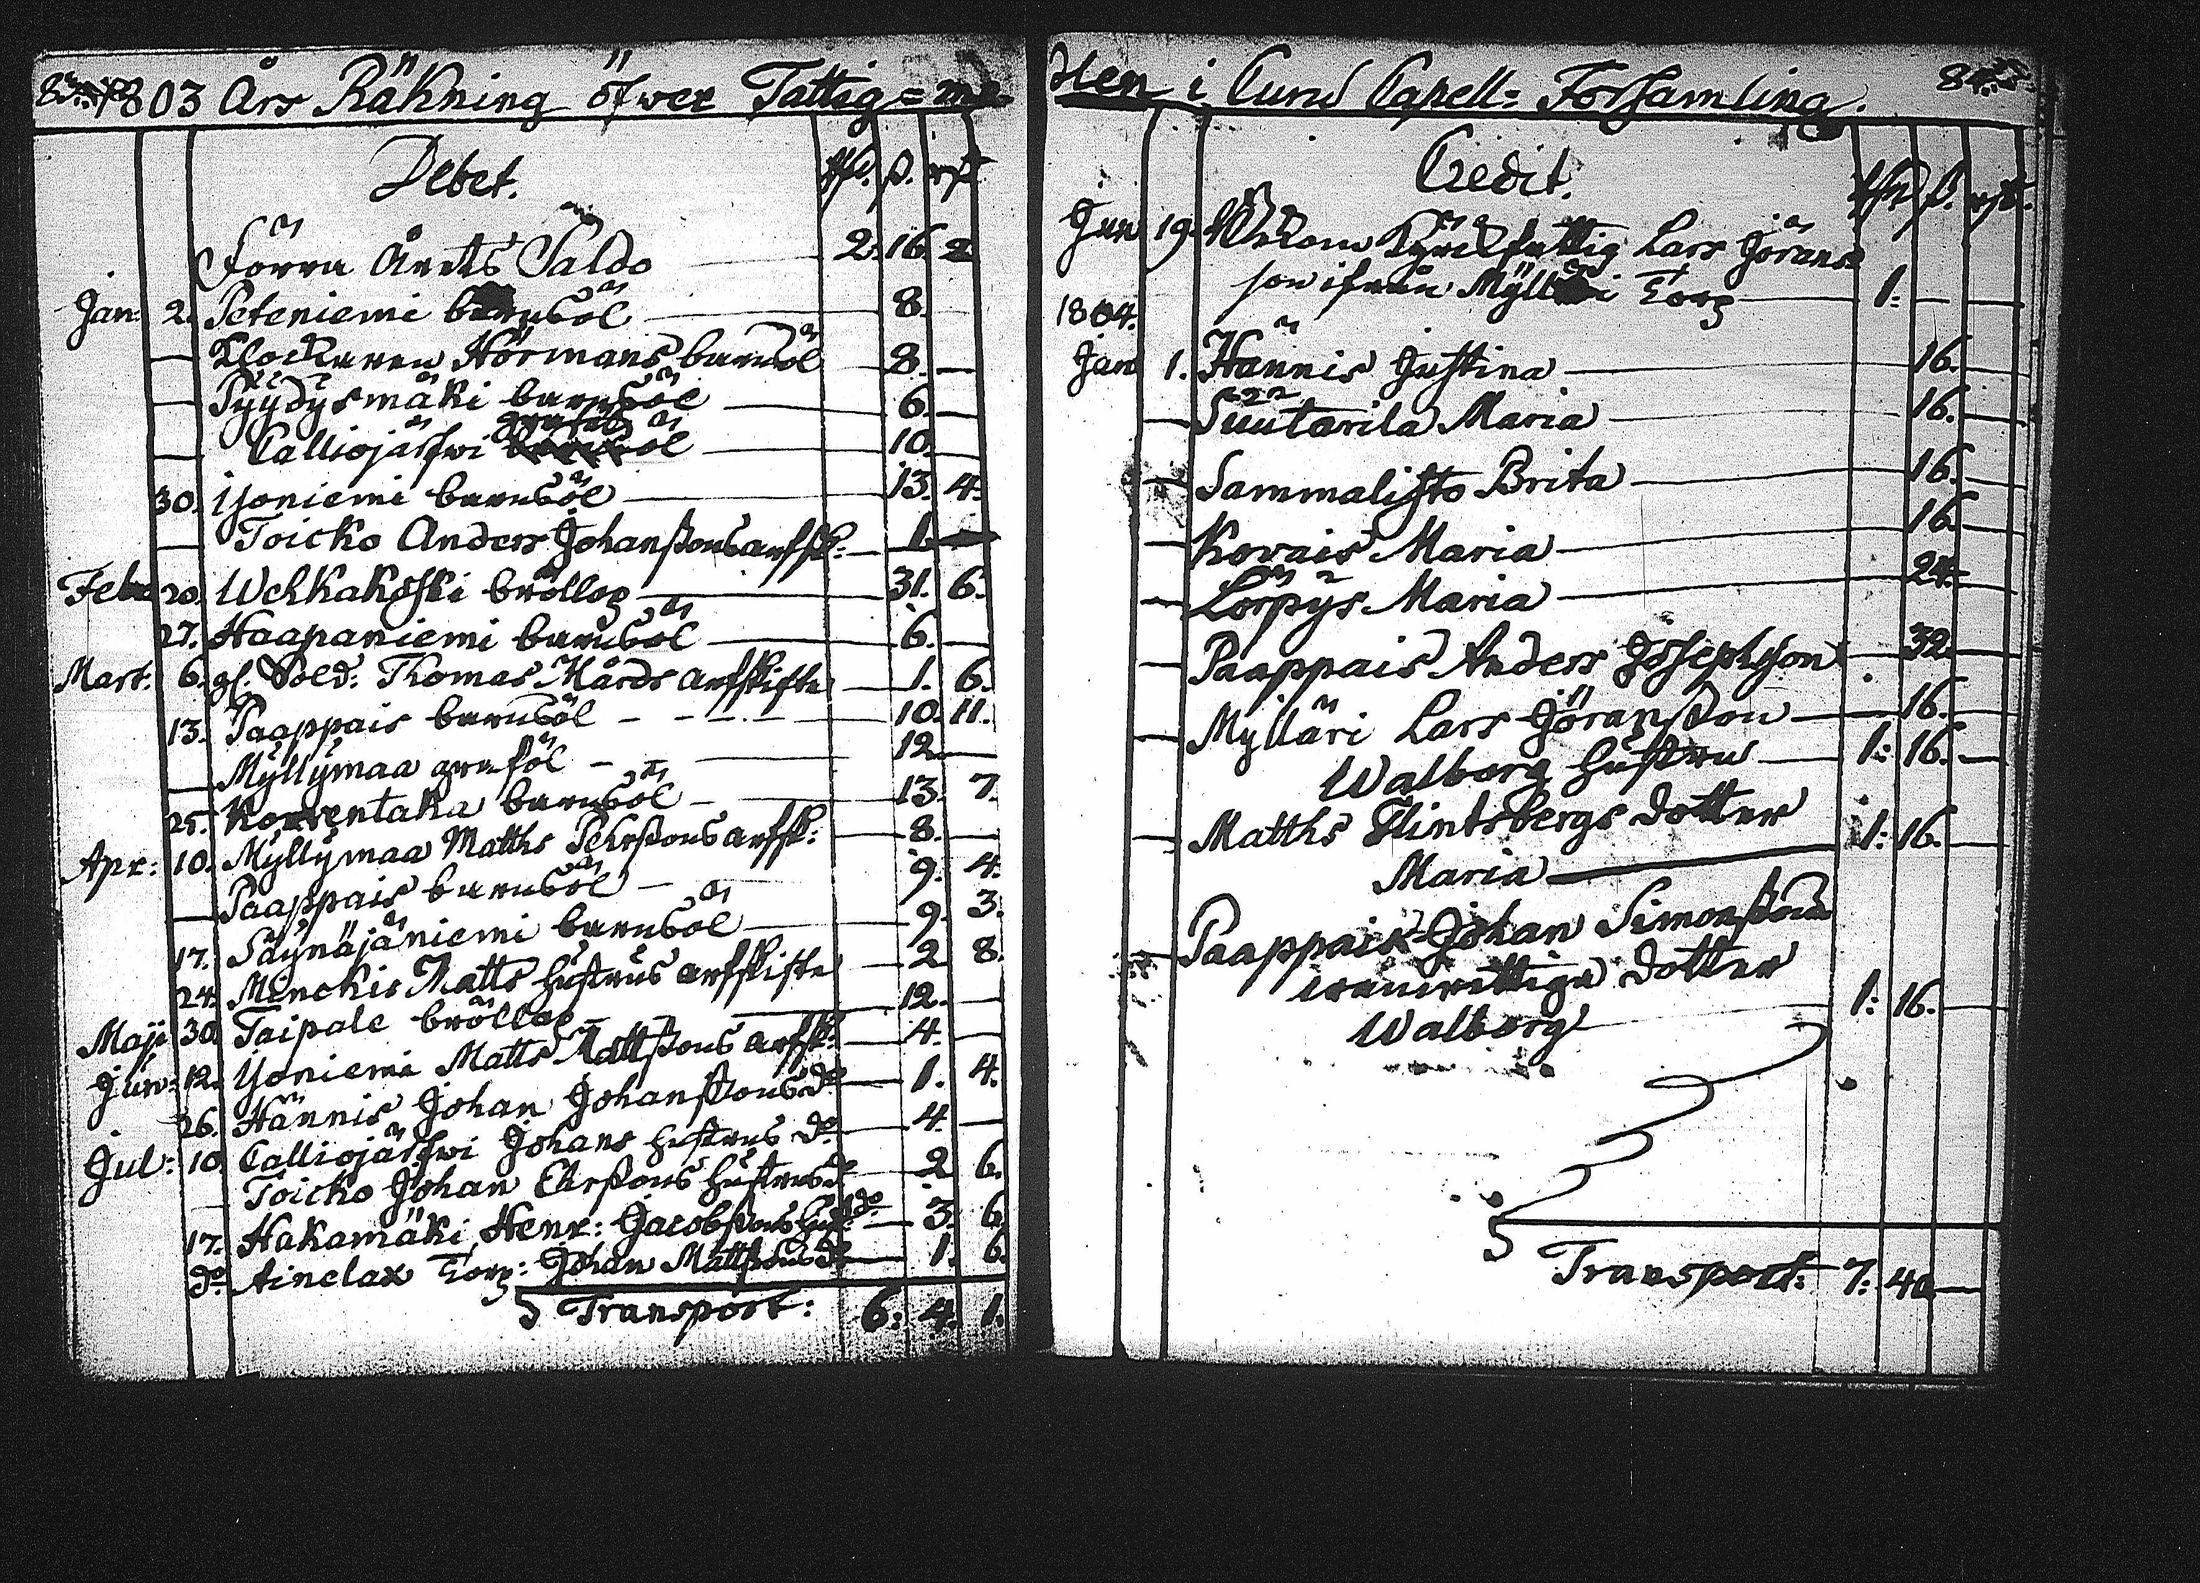 1803 Års Räkning öfwer Fattig=me
Debet.
Rsd. ß. rst.
Förra Årets Saldo 2. 16. 2.
Jan: 2. Peteniemi barnsöl 8.
— Klockaren Hörmans barnsöl 8. —
— Pyydysmäki barnsöl 6. —
— Calliojärfwi graföl 10. —
30. Yoniemi barnsöl 13. 4.
— Toicko Anders Johanssons arfsk: 1. —
Febr. 20. Wehkakoski bröllop 31. 6.
27. Haapaniemi barnsöl 6. —
Mart: 6. gl. Sold: Thomas Hårds arfskifte 1. 6.
13. Paappais barnsöl 10. 11.
— Myllymaa graföl 12. —
25. Korventaka barnsöl 13. 7.
Apr: 10. Myllymaa Matths Pehrssons arfsk: 8. —
— Paappais barnsöl 9. 4.
17. Säynäjäniemi barnsöl 9. 3.
24. Menckis Matts hustrus arfskifte 2. 8.
Maji 30. Taipale bröllop 12. —
Jun: 12. Yoniemi Matts Mattssons arfsk: 4. —
26. Hännis Johan Johanssons do 1. 4.
Jul: 10. Calliojärfwi Johans hustrus do 4. —
— Toicko Johan Ehrssons hustrus do 2. 6.
17. Hakamäki Henr: Jacobssons hust. do 3. 6.
do Ainelax Torp: Johan Mattssons do 1. 6.
Transport: 6: 4. 1.
den i Curu Capell= Församling.
Credit.
Rsd ß. rst.
Jun 19. Lars Görans
son ifrån Mylläri Torp 1: — —
1804.
Jan 1. Hännis Justina 16. —
— Suutarila Maria 16. —
— Sammalisto Brita 16. —
— Kovais Maria 16. —
— Lörpys Maria 24. —
— Paappais Anders Josephson 32. —
— Mylläri Lars Göransson 16. —
Walborg hustru 1: 16. —
— Matths Flintsbergs dotter
Maria 1: 16. —
— Paappais Johan Simonssons
wanwettiga dotter
Walborg 1: 16. —
Transport: 7: 40 —